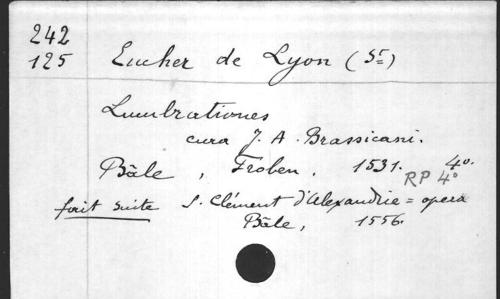 242
125 Eucher de Lyon (St)
Lucubrationes
cura J. A. Brassicani.
Bâle, Froben, 1531. 4o.
RP 4o
fait suite S. Clément d'Alexandrie = opera
Bâle, 1556.